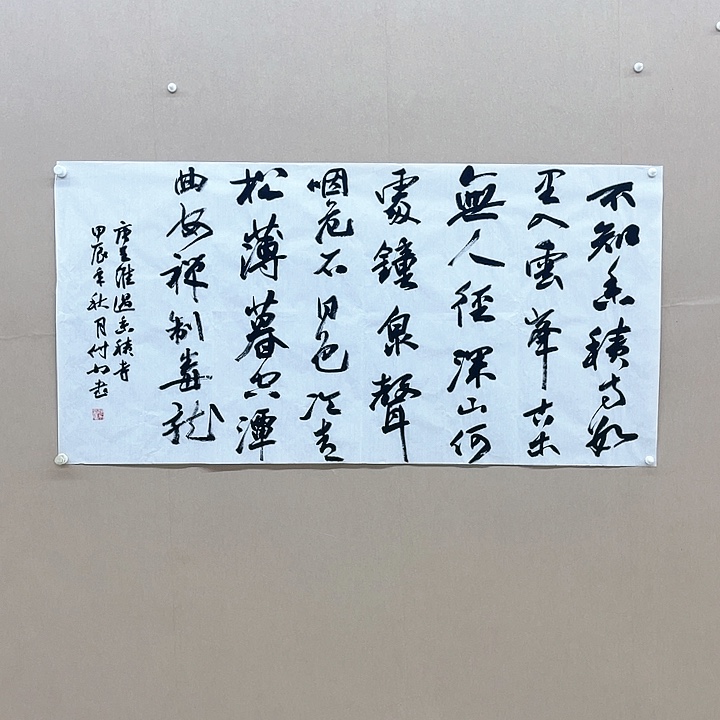 不知香積寺數
里入雲峯古木
無人徑深山何
處鐘泉聲
咽危石日色冷青
松薄暮空潭
曲安禪制毒龍
唐王維過香積寺
甲辰年秋月付书